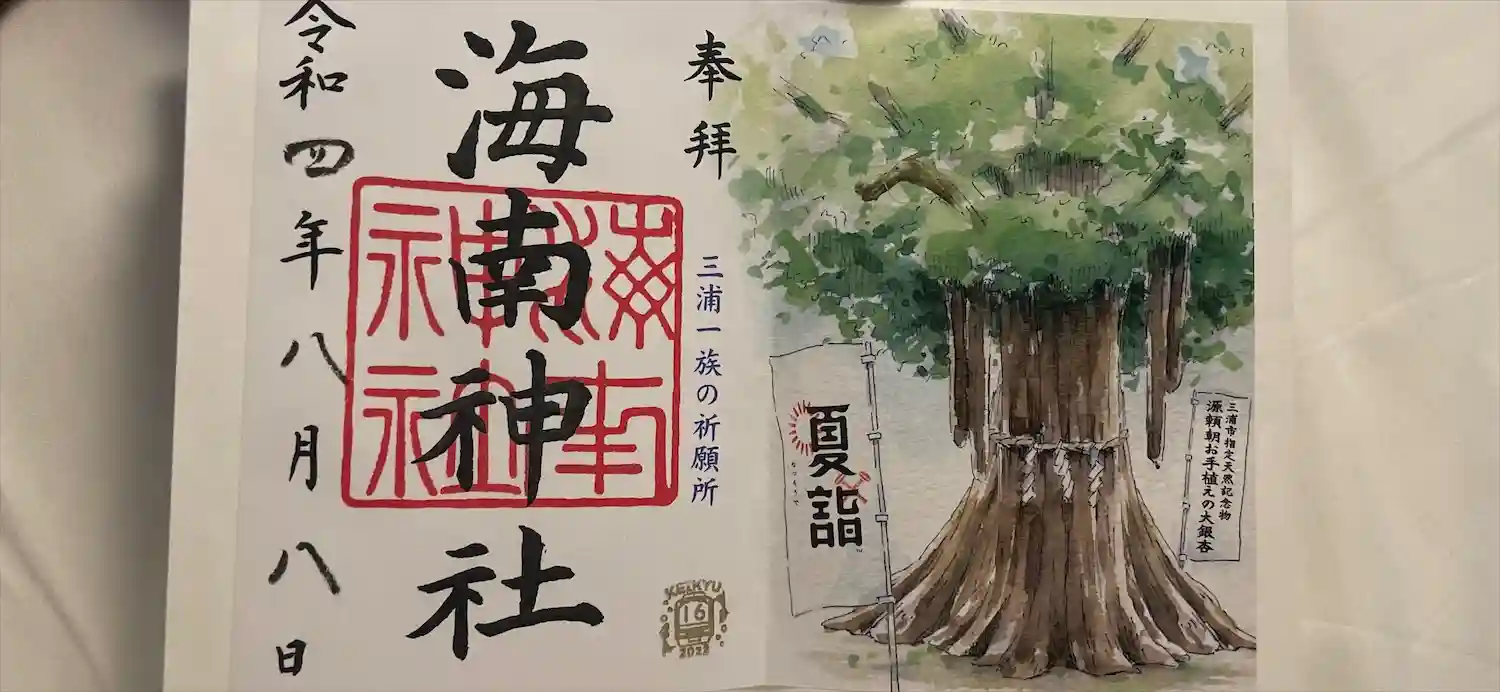 奉拝
三浦一族の祈願所
海南神社
海南神社
令和四年八月八日
KEIKYU
16
2022
夏詣
なつもうで
三浦市指定天然記念物
源頼朝お手植えの大銀杏